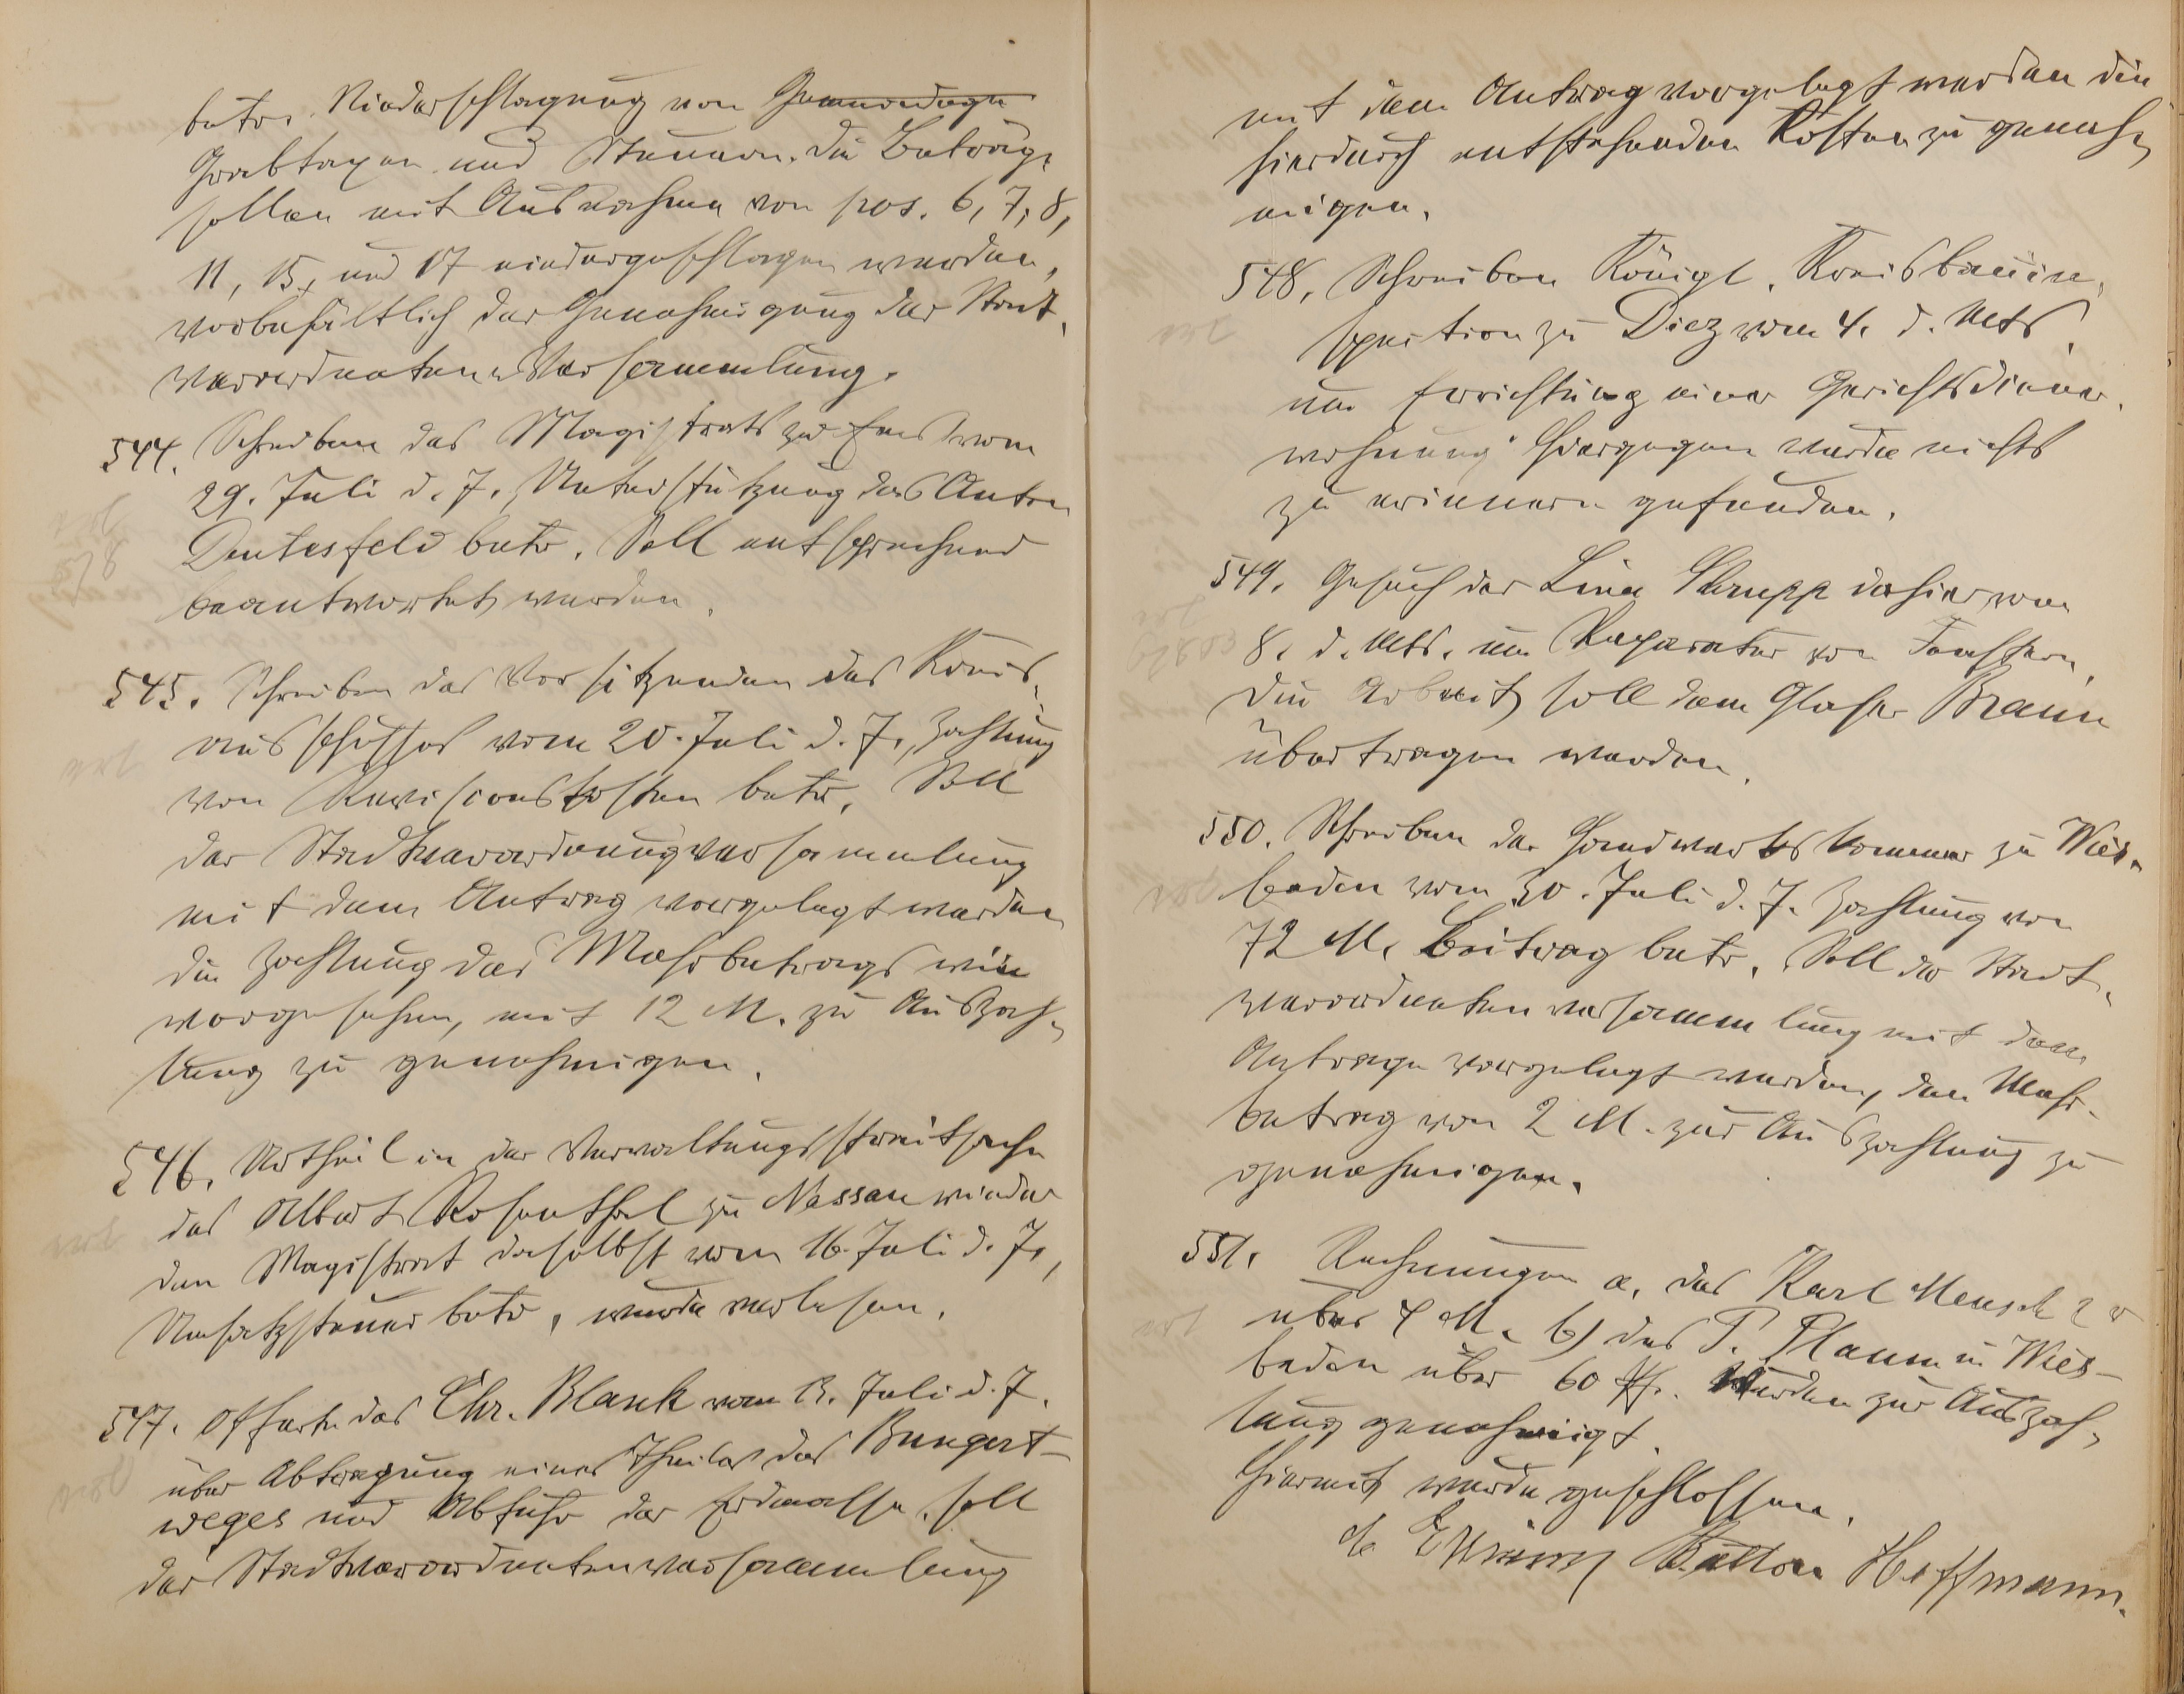 betr. Niederschlagung von Gemeindege
Grabtaxen und Steuern. Die Beträge
sollen mit Ausnahme von pos. 6, 7, 8,
11, 15, und 17 niedergeschlagen werden,
vorbehältlich der Genehmigung der Stadt-
verordneten-Versammlung.
544. Schreiben des Magistrats zu Ems vom
29. Juli d. J., Unterstützung des Anton
Deutesfeld betr. Soll entsprechend
beantwortet werden.
545. Schreiben des Vorsitzenden des Kreis-
ausschusses vom 20. Juli d. J., Zahlung
von Revisionskosten betr. Soll
der Stadtverordnungversammlung
mit dem Antrag vorgelegt werden
die Zahlung des Mehrbetrags wie
vorgesehen, mit 12 M. zu Auszah-
lung zu genehmigen.
546. Urtheil in der Verwaltungsstreitsache
des Albert Rosenthal zu Nassau wieder
den Magistrat daselbst vom 16. Juli d. J.,
Umsatzsteuer betr., wurde verlesen.
547. Offerte des Chr. Blank vom 13. Juli d. J.
über Abtragung eines Theiles des Bungert-
weges und Abfuhr der Erdmasse, soll
der Stadtverordnetenversammlung
mit dem Antrag vorgelegt werden die
hierdurch entstehenden Kosten zu geneh-
migen.
548. Schreiben Königl. Kreisbauin-
spection zu Diez vom 4. d. Mts.
um Errichtung einer Gerichtsdiener-
wohnung. Hiergegen wurde nichts
zu erinnern gefunden.
549. Gesuch der Lina Strupp dahier vom
8. d. Mts. um Reparatur von Fenstern.
Die Arbeit soll dem Glaser Braun
übertragen werden.
550. Schreiben der Handwerkskammer zu Wies-
baden vom 30. Juli d. J. Zahlung von
72 M. Beitrag betr. Soll der Stadt-
verordnetenversammlung mit dem
Antrage vorgelegt werden, den Mehr-
betrag von 2 M. zur Auszahlung zu
genehmigen.
551. Rechnungen a, des Karl Mensch
über 4 M. b) des P. Plaum in Wies-
baden über 60 Pf. Wurden zur Auszah-
lung genehmigt.
Hiermit wurde geschlossen.
Hoffmann.